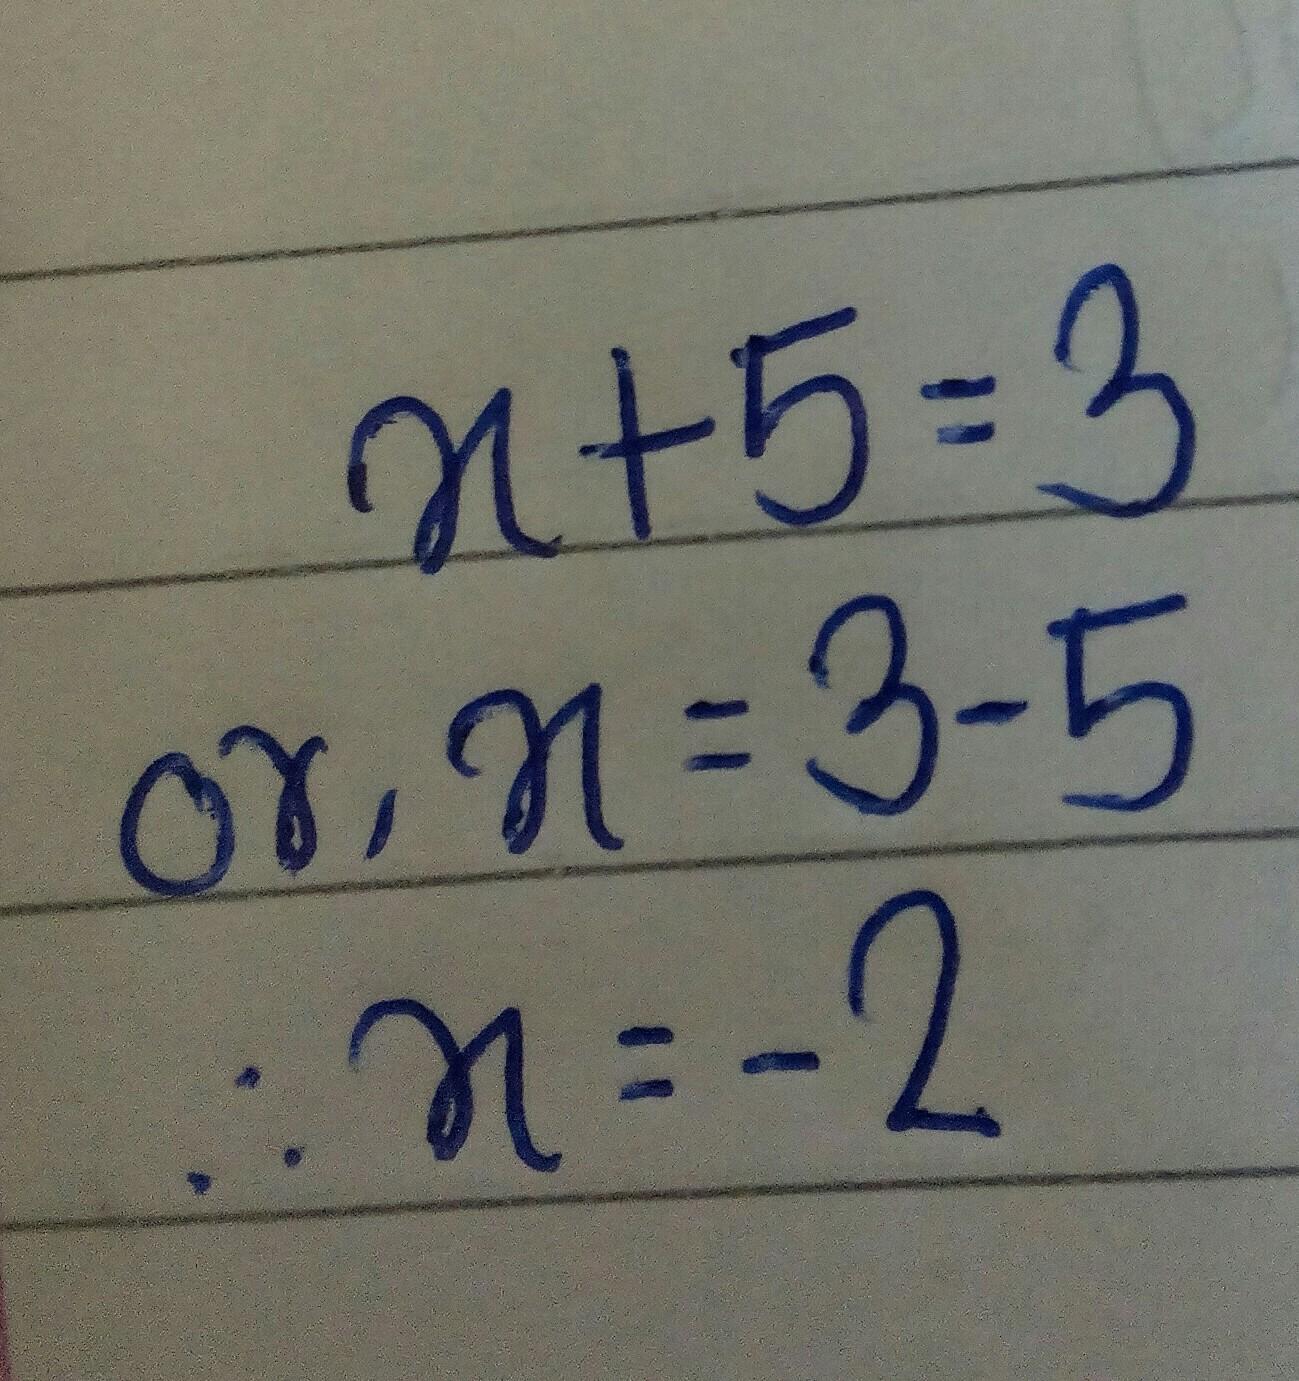 x+5=3
or, x=3-5
∴ x=-2